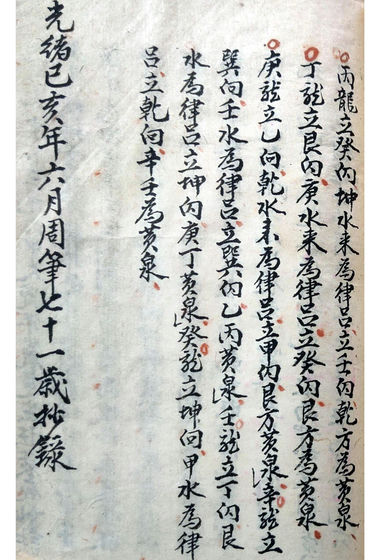 丙龍立癸向坤水来為律吕立壬向乾方為黄泉
丁龍立艮向庚水来為律吕立癸向艮方為黄泉
庚龍立乙向乾水来為律吕立甲向艮方黄泉辛龍立
巽向壬水為律吕立巽向乙丙黄泉壬龍立丁向艮
水為律吕立坤向庚丁黄泉癸龍立坤向甲水為律
吕立乾向辛壬為黄泉
光緒己亥年六月周筆七十一歲抄錄